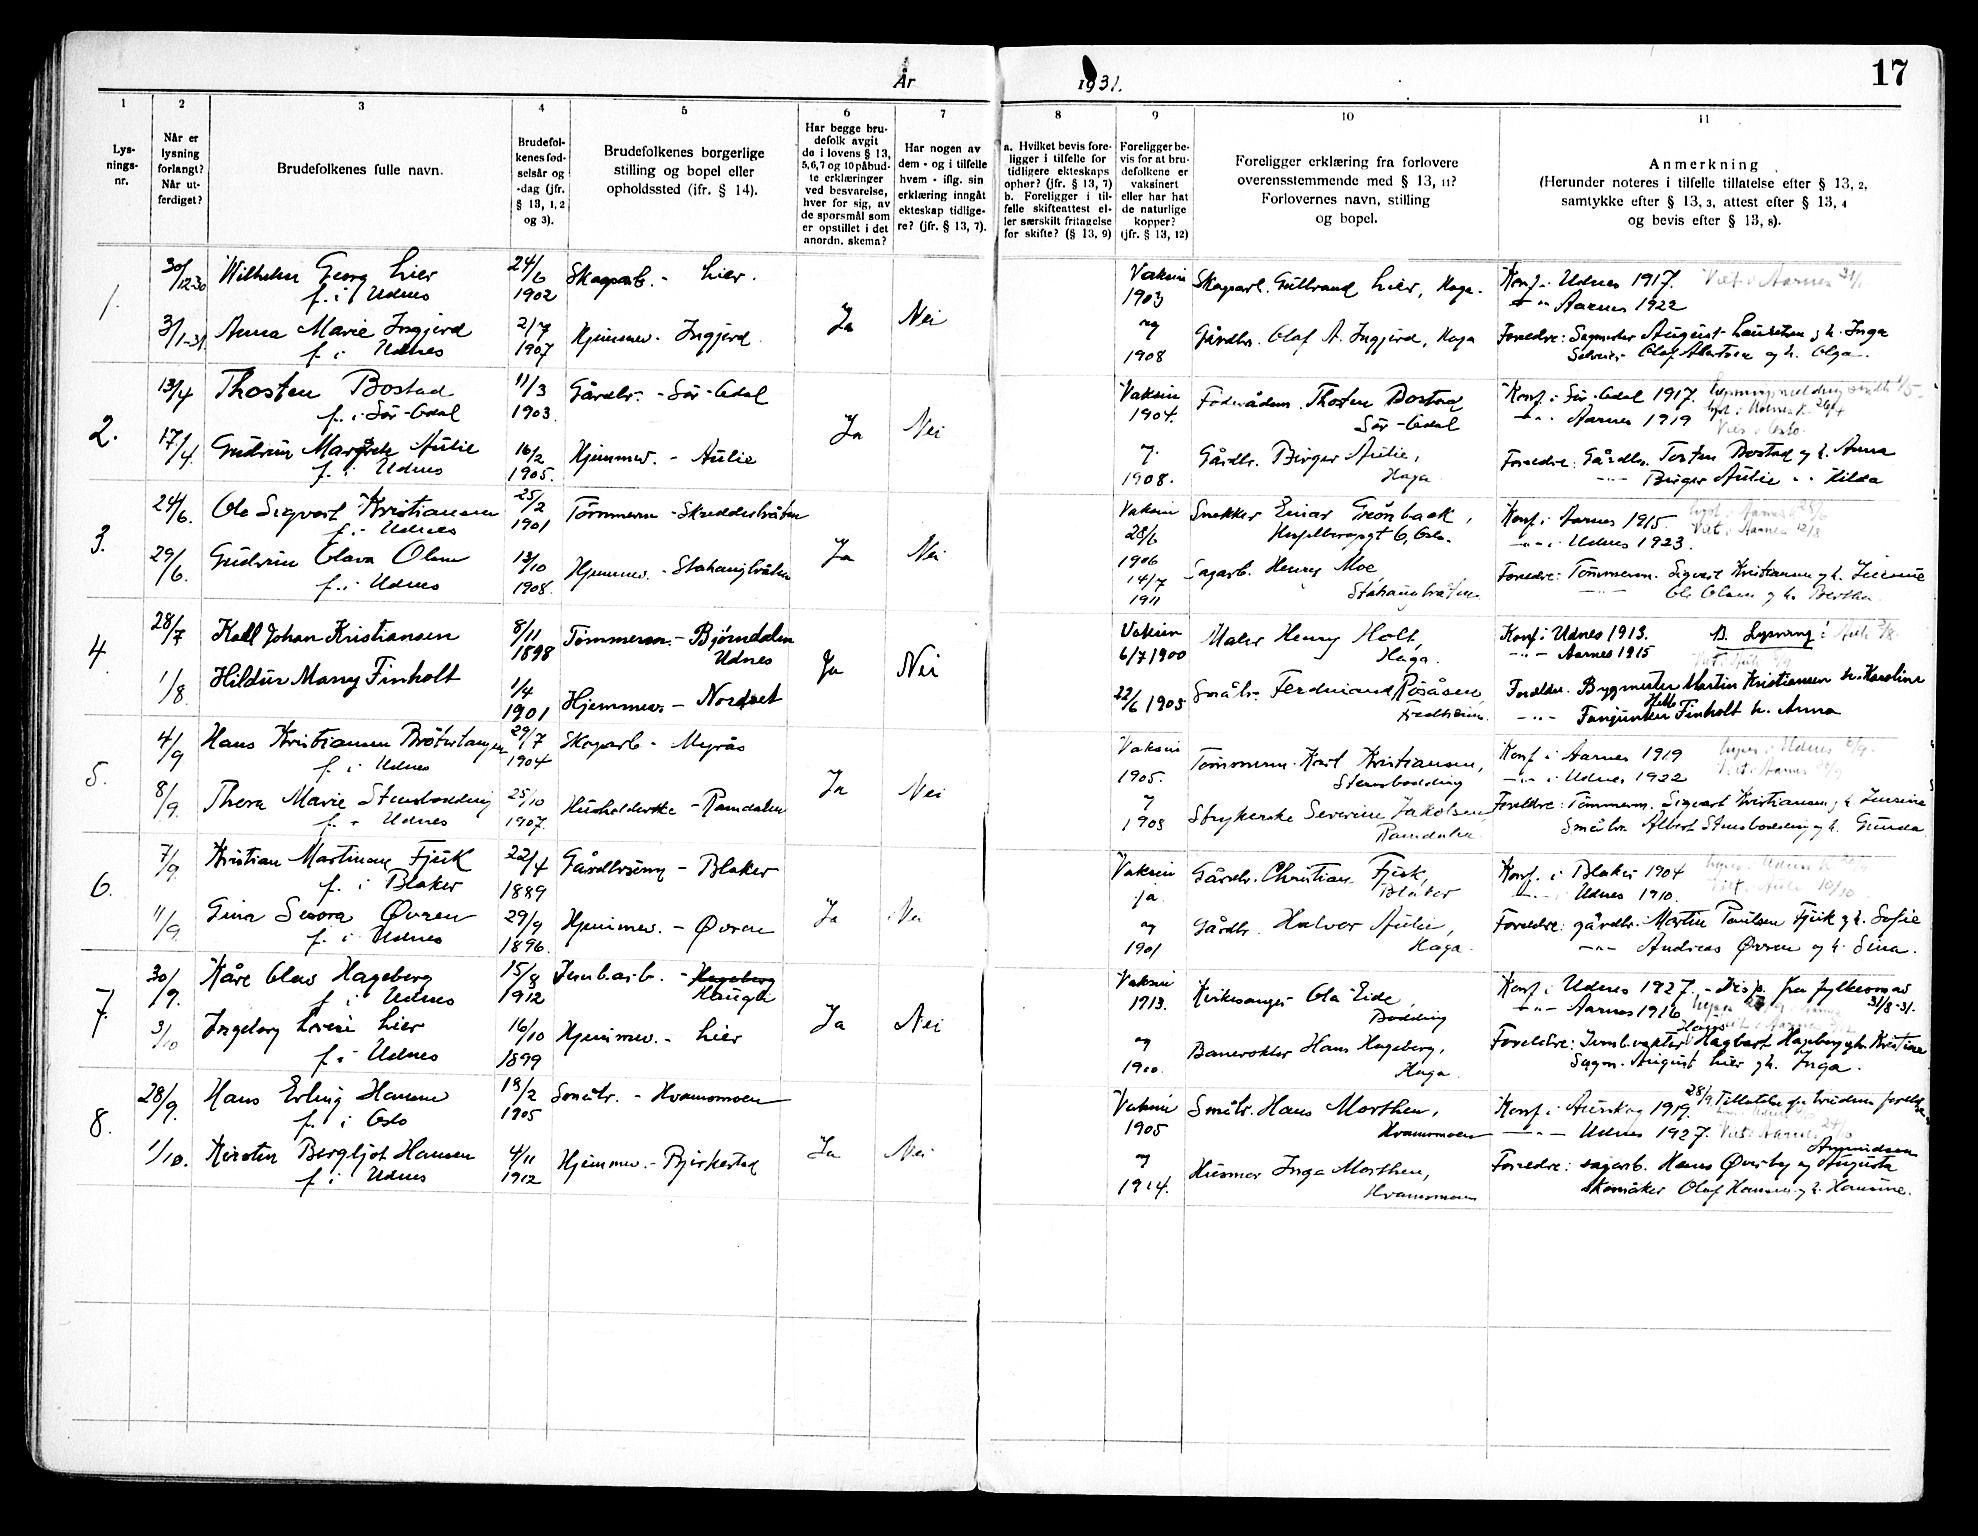 År 1931.
17
1
Lysningsnr.
2
Når er lysning forlangt? Når utferdiget?
3
Brudefolkenes fulle navn.
4
Brudefolkenes fødselsår og -dag (jfr. § 13, 1, 2 og 3).
5
Brudefolkenes borgerlige stilling og bopel eller opholdssted (ifr. § 14).
6
Har begge brudefolk avgit de i lovens § 13, 5, 6, 7 og 10 påbudte erklæringer ved besvarelse, hver for sig, av de spørsmål som er opstillet i det anordn. skema?
7
Har nogen av dem - og i tilfelle hvem - iflg. sin erklæring inngåt ekteskap tidligere? (jfr. § 13, 7).
8
a. Hvilket bevis foreligger i tilfelle for tidligere ekteskaps ophør? (jfr. § 13, 7) b. Foreligger i tilfelle skifteattest eller særskilt fritagelse for skifte? (§ 13, 9)
9
Foreligger bevis for at brudefolkene er vaksinert eller har hat de naturlige kopper? (jfr. § 13, 12)
10
Foreligger erklæring fra forlovere overensstemmende med § 13, 11? Forlovernes navn, stilling og bopel.
11
Anmerkning
(Herunder noteres i tilfelle tillatelse efter § 13, 2, samtykke efter § 13, 3, attest efter § 13, 4 og bevis efter § 13, 8).
1.
30/12-30 Wilhelm Georg Lier 24/6 Skogarb. - Lier.
f. i Udnes 1902
3/1-31 Anna Marie Ingjerd 2/7 Hjemmev. - Ingjerd.
f. i Udnes 1907
Ja Nei
Vaksin 1903 Skogarb. Gulbrand Lier, Haga. Konf. i Udnes 1917. Viet i Aarnes 31/1
- " - Aarnes 1922
og 1908 Gårdbr. Olaf A. Ingjerd, Haga Foreldre: Sagmester August Lauritsen og h. Inga
Olaf Albertsen og h. Olga.
2.
13/4 Thosten Bostad 11/3 Gårdbr. - Sör-Odal
f. i Sör-Odal 1903.
17/4. Gudrun Margrete Aulie 16/2 Hjemmev. - Aulie
f. i Udnes 1905.
Ja Nei
Vaksin 1904. Föderådsm. Thosten Bostad Konf. i Sör-Odal 1917.
Sör-Odal - " - Aarnes 1919
og 1908. Gårdbr. Birger Aulie, Foreldre: Gårdbr. Tosten Bostad og h. Anna
Haga - " - Birger Aulie " " Hilda
3.
24/6. Ole Sigvart Kristiansen 25/2 Tömmerm - Skredderbråten
f. i Udnes 1901
29/6. Gudrun Olava Olsen 13/10 Hjemmev. - Stahaugbråten
f. i Udnes 1908.
Ja Nei
Vaksin 28/6 1906 Snekker Einar Grönbaek, Konf. i Aarnes 1915.
6, Oslo. - " - i Udnes 1923.
14/7 1911 Sagarb. Henry Moe Foreldre: Tömmerm. Sigvart Kristiansen og h.
Stahaugbråten Ole Olsen og h. Bertha
4.
28/7 Karl Johan Kristiansen 8/11 1898 Tömmerm. - Bjørndalen
Udnes
1/8. Hildur Marry Finholt 1/4 1901 Hjemmev. - Nordset
Ja Nei
Vaksin 6/7 1900 Maler Henry Holt, Konf. i Udnes 1913. B. Lysning i
Haga. - " - Aarnes 1915
22/6 1905 Småbr. Ferdinand Rösåsen, Foreldre: Bygmester Martin Kristiansen h. Karoline
Fredheim. - " - Fanjunker Finholt h. Anna
5.
4/9 Hans Kristiansen Bråtertangen 29/7 Skogarb - Myrås
f. i Udnes 1904
8/9. Thora Marie Stensbodding 25/10 Husholderske - Ramdalen
f. i Udnes 1907.
Ja Nei
Vaksin 1905. Tömmerm. Karl Kristiansen, Konf. i Aarnes 1919
Stensbodding - " - i Udnes 1922
og 1908 Strykerske Severine Jakobsen Foreldre: Tömmerm. Sigvart Kristiansen og h.
Ramdalen. Småbr. Albert Stensbodding og h. Gunda
6.
7/9. Kristian Martinsen Fjuk 22/4 Gårdbr - Blaker
f. i Blaker 1889
11/9. Gina Øvren 29/9 Hjemmev. - Øvren
f. i Udnes 1896.
Ja Nei
Vaksin ja. Gårdbr. Christian Fjuk, Konf. i Blaker 1904
Blaker - " - Udnes 1910.
og 1901 Gårdbr. Halvor Aulie, Foreldre: gårdbr. Martin Paulsen Fjuk og h. Sofie
Haga. - " - Andreas Øvren og h. Gina.
7.
30/9. Kåre Olaus Hageberg 15/8 Jernb.arb. - Hageberg
f. i Udnes 1912 Haugen
3/10 Ingeborg Lovise Lier 16/10 Hjemmev. - Lier
f. i Udnes 1899
Ja Nei
Vaksin 1913. Kirkesanger Ola Eide, Konf. i Udnes 1927. - Disp. fra fylkesmas
Bodding - " - Aarnes 1916 31/8-31.
og 1900. Banevokter Hans Hageberg, Foreldre: Jernb.vokter Hagbart Hageberg og h. Kristine
Haga. Sagm. August Lier og h. Inga.
8.
28/9. Hans Erling Hansen 19/2 Småbr. - Hvamsmoen
f. i Oslo 1905
1/10. Kirstin Bergljot Hansen 4/11 Hjemmev. - Bjirkestad
f. i Udnes 1912
Ja Nei
Vaksin 1905 Småbr. Hans Morthen, Konf. i Aurskog 1919. 28/9. Tillatelse fra brudens foreldre
Hvamsmoen - " - Udnes 1927. Viet i Aarnes
og 1914. Husmor Inga Morthen, Foreldre: sagarb. Hans Øverby og Augusta Asmundsen
Hvamsmoen Skomaker Olaf Hansen og h. Hansine.